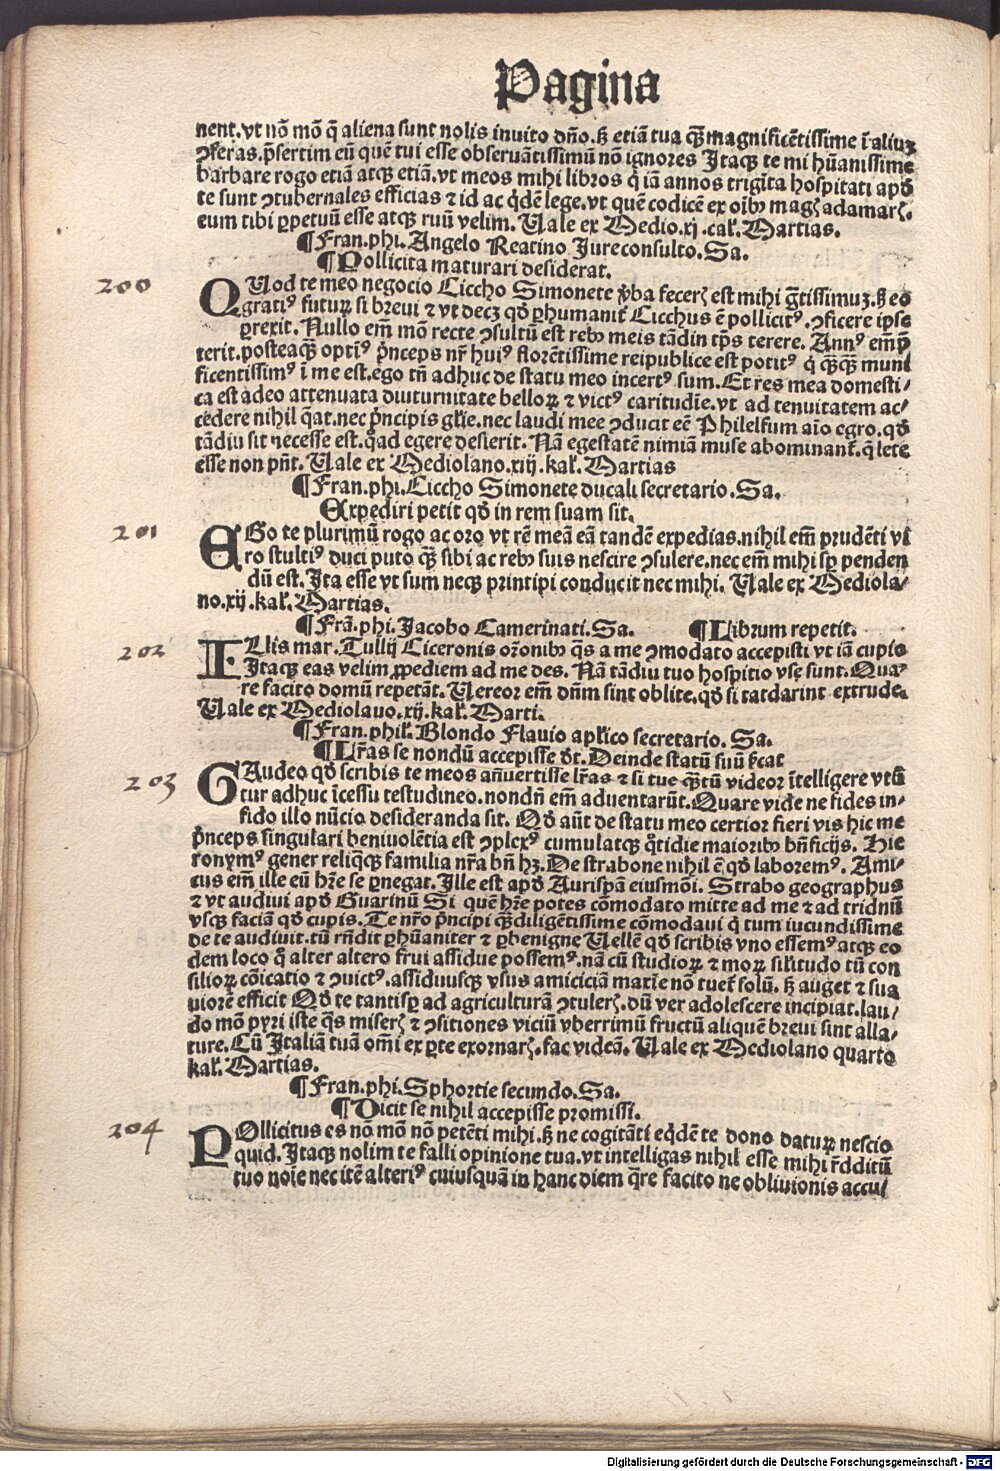 Pagina
nent.vt nō mō q̄ aliena sunt nolis inuito dño.ꝫ etiā tua qꝫ̄ magnificētissime ī aliuꝫ
ꝯferas.p̄sertim eū quē tui esse obseruātissimū nō ignores Itaqꝫ te mi hūanissime
barbare rogo etiā atqꝫ etiā.vt meos mihi libros q̇ iā annos trigīta hospitati apd̄
te sunt ꝯtubernales efficias ⁊ id ac qḋē lege.vt quē codicē ex oībꝰ magꝭ adamarꝭ.
eum tibi ꝑpetuū esse atqꝫ ruū velim. Uale ex Medio.xj.kal̄. Martias.
¶Fran.phi. Angelo Reatino Jureconsulto.Sa.
¶Pollicita maturari desiderat.
200
QUod te meo negocio Ciccho Simonete ꝟba fecerꝭ est mihi gr̄tissimuꝫ.ꝫ eo
gratiꝰ futurꝝ si breui ⁊ vt decꝫ qd̄ ꝑhumanit̄ Cicchus ē pollicitꝰ.ꝯficere ipse
ꝑrexit. Nullo em̄ mō recte ꝯsultū est rebꝰ meis tādin tp̄s terere. Annꝰ em̄ p̄
terit.posteaqꝫ̄ optīꝰ p̄nceps nr̄ huiꝰ florētissime reipublice est potitꝰ q̇ qꝫ̄qꝫ̄ muni
ficentissimꝰ ī me est.ego tn̄ adhuc de statu meo incertꝰ sum. Et res mea domesti/
ca est adeo attenuata diuturnitate bellorꝝ ⁊ victꝰ caritudīe.vt ad tenuitatem ac/
cedere nihil q̄at.nec p̄ncipis gl̄ie.nec laudi mee ꝯducit eē Philelfum aīo egro.qd̄
tādiu sit necesse est.q̄ad egere desierit. Nā egestatē nimiā muse abominant̄.q̄ lete
esse non pn̄t. Uale ex Mediolano.xiij.kal̄. Martias
¶Fran.phi.Ciccho Simonete ducali secretario.Sa.
Expediri petit qd̄ in rem suam sit.
201
EGo te plurimū rogo ac oro vt rē meā eā tandē expedias.nihil em̄ prudēti vi
ro stultiꝰ duci puto qꝫ̄ sibi ac rebꝰ suis nescire ꝯsulere.nec em̄ mihi sꝑ penden
dū est. Ita esse vt sum neqꝫ printipi conducit nec mihi. Uale ex Mediola/
no.xij.kal̄.Martias.
¶Frā.phi.Jacobo Camerinati.Sa. ¶Librum repetit.
202
ILlis mar.Tullij Ciceronis or̄onibꝰ q̄s a me ꝯmodato accepisti vt iā cupio
Itaqꝫ eas velim ꝓpediem ad me des. Nā tādiu tuo hospitio vse sunt.Qua
re facito domū repetāt. Uereor em̄ dn̄m sint oblite.qd̄ si tardarint extrude.
Uale ex Mediolauo.xij.kal̄.Marti.
¶Fran.phil̄.Blondo Flauio apl̄ico secretario. Sa.
¶Lr̄as se nondū accepisse d̄t.Deinde statū suū p̄cat
203
GAudeo qd̄ scribis te meos an̄uertisse lr̄as ⁊ si tue qꝫ̄tū videor ītelligere vtū
tur adhuc īcessu testudineo.nondn̄ em̄ aduentarūt.Quare vide ne fides in/
fido illo nūcio desideranda sit. Qd̄ aūt de statu meo certior fieri vis hic me
p̄nceps singulari beniuolētia est ꝯplexꝰ cumulatqꝫ q̊tidie maioribꝰ bn̄ficijs. Hie
ronymꝰ gener reliq̄qꝫ familia nr̄a bn̄ hꝫ.De strabone nihil ē qd̄ laboremꝰ. Ami/
cus em̄ ille eū hr̄e se ꝑnegat.Ille est apd̄ Aurispā eiusmōi. Strabo geographus
⁊ vt audiui apd̄ Guarinū Si quē hr̄e potes cōmodato mitte ad me ⁊ ad triduū
vsqꝫ faciā qd̄ cupis.Te nr̄o p̄ncipi qꝫ̄diligētissime cōmodaui q̇ tum iucundissime
de te audiuit.tū rn̄dit ꝑhūaniter ⁊ ꝑbenigne Uellē qd̄ scribis vno essemꝰ atqꝫ eo
dem loco q̇ alter altero frui assidue possemꝰ.nā cū studiorꝝ ⁊ morꝝ sil̄itudo tū con
siliorꝝ cōicatio ⁊ ꝯuictꝰ.assiduusqꝫ vsus amiciciā maxīe nō tuet̄ solū.ꝫ auget ⁊ sua
uiorē efficit Qd̄ te tantisꝑ ad agriculturā ꝯtulerꝭ.dū ver adolescere incipiat.lau/
do mō pyri iste q̄s miserꝭ ⁊ ꝯsitiones viciū vberrimū fructū aliquē breui sint alla/
ture.Cū Italiā tuā om̄i ex ꝑte exornarꝭ.fac videā. Uale ex Mediolano quarto
kal̄.Martias.
¶Fran.phi.Sphortie secundo.Sa.
¶Dicit se nihil accepisse promissi.
204
POllicitus es nō mō nō petēti mihi.ꝫ ne cogitāti eqd̄ē te dono daturꝝ nescio
quid.Itaqꝫ nolim te falli opinione tua.vt intelligas nihil esse mihi r̄dditū
tuo noīe nec itē alteriꝰ cuiusquā in hanc diem q̄re facito ne obliuionis accu/
Digitalisierung gefördert durch die Deutsche Forschungsgemeinschaft - DFG